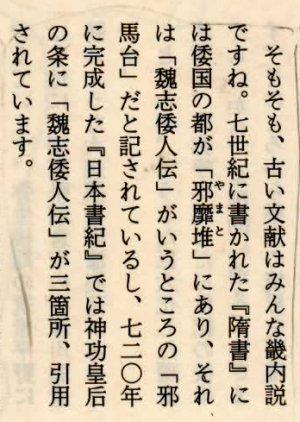 そもそも、古い文献はみんな畿内説
ですね。七世紀に書かれた『隋書』に
は倭国の都が「邪靡堆」にあり、それ
やまと
は「魏志倭人伝」がいうところの「邪
馬台」だと記されているし、七二〇年
に完成した『日本書紀』では神功皇后
の条に「魏志倭人伝」が三箇所、引用
されています。